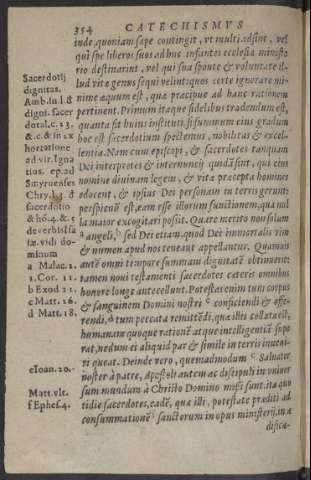 354 CATECHISMVS
inde, quoniam sæpe contingit, ut multi adsint, vel
qui spe liberos suos adhuc infantes ecclesiæ ministe
rio destinarint, vel qui sua sponte & voluntate il-
lud vitæ genus sequi velint: quos certe ignorare mi-
nime æquum est, quæ præcipue ad hanc rationem
pertinent. Primum itaque fidelibus tradendum est,
quanta sit huius instituti, si summum eius gradum
hoc est sacerdotium spectemus, nobilitas & excel-
lentia. Nam cum episcopi, & sacerdotes tanquam
Dei interpretes & internuncij quidã sint, qui eius
nomine divinam legem, & vitæ præcepta homines
edocent, & ipsius Dei personam in terris gerunt:
perspicuũ est, eam esse illorum functionem, qua nul
la maior excogitari possit. Quare merito non solum
a angeli, b sed Dei etiam, quod Dei immortalis vim
& numen apud nos teneant appellantur. Quamvis
autẽ omni tempore summam dignitatẽ obtinuerit:
tamen noui testamenti sacerdotes cæteris omnibus
honore longe antecellunt. Potestas enim tum corpus
& sanguinem Domini nostri c conficiendi & offe-
rendi, d tum peccata remittẽdi, quæ illis collata est,
humanam quoque rationẽ atque intelligentiã supe
rat, nedum ei aliquid par & simile in terris inueni-
ri queat. Deinde vero, quemadmodum e Saluator
noster à patre, Apostoli autem ac discipuli in vniuer
sum mundum à Christo Domino missi sunt, ita quo
tidie sacerdotes, eadẽ, qua illi, potestate præditi ad
consummationẽ f sanctorum in opus ministerij, in æ
difica-
Sacerdotij
dignitas.
Amb. in l. de
digni. sacer
dotal. c. 23.
& c. & in ex
hortatione
ad vir. Igna
tius. ep. ad
Smyrnenses
Chry. l. 3. de
sacerdotio
& hõ. 4. & 5
de verbis Isa
iæ. vidi do-
minum
a Malac. 2.
1. Cor. 11.
b Exod 21.
c Matt. 26.
d Matt. 18.
e Ioan. 20.
Matt. vlt.
f Ephes. 4.